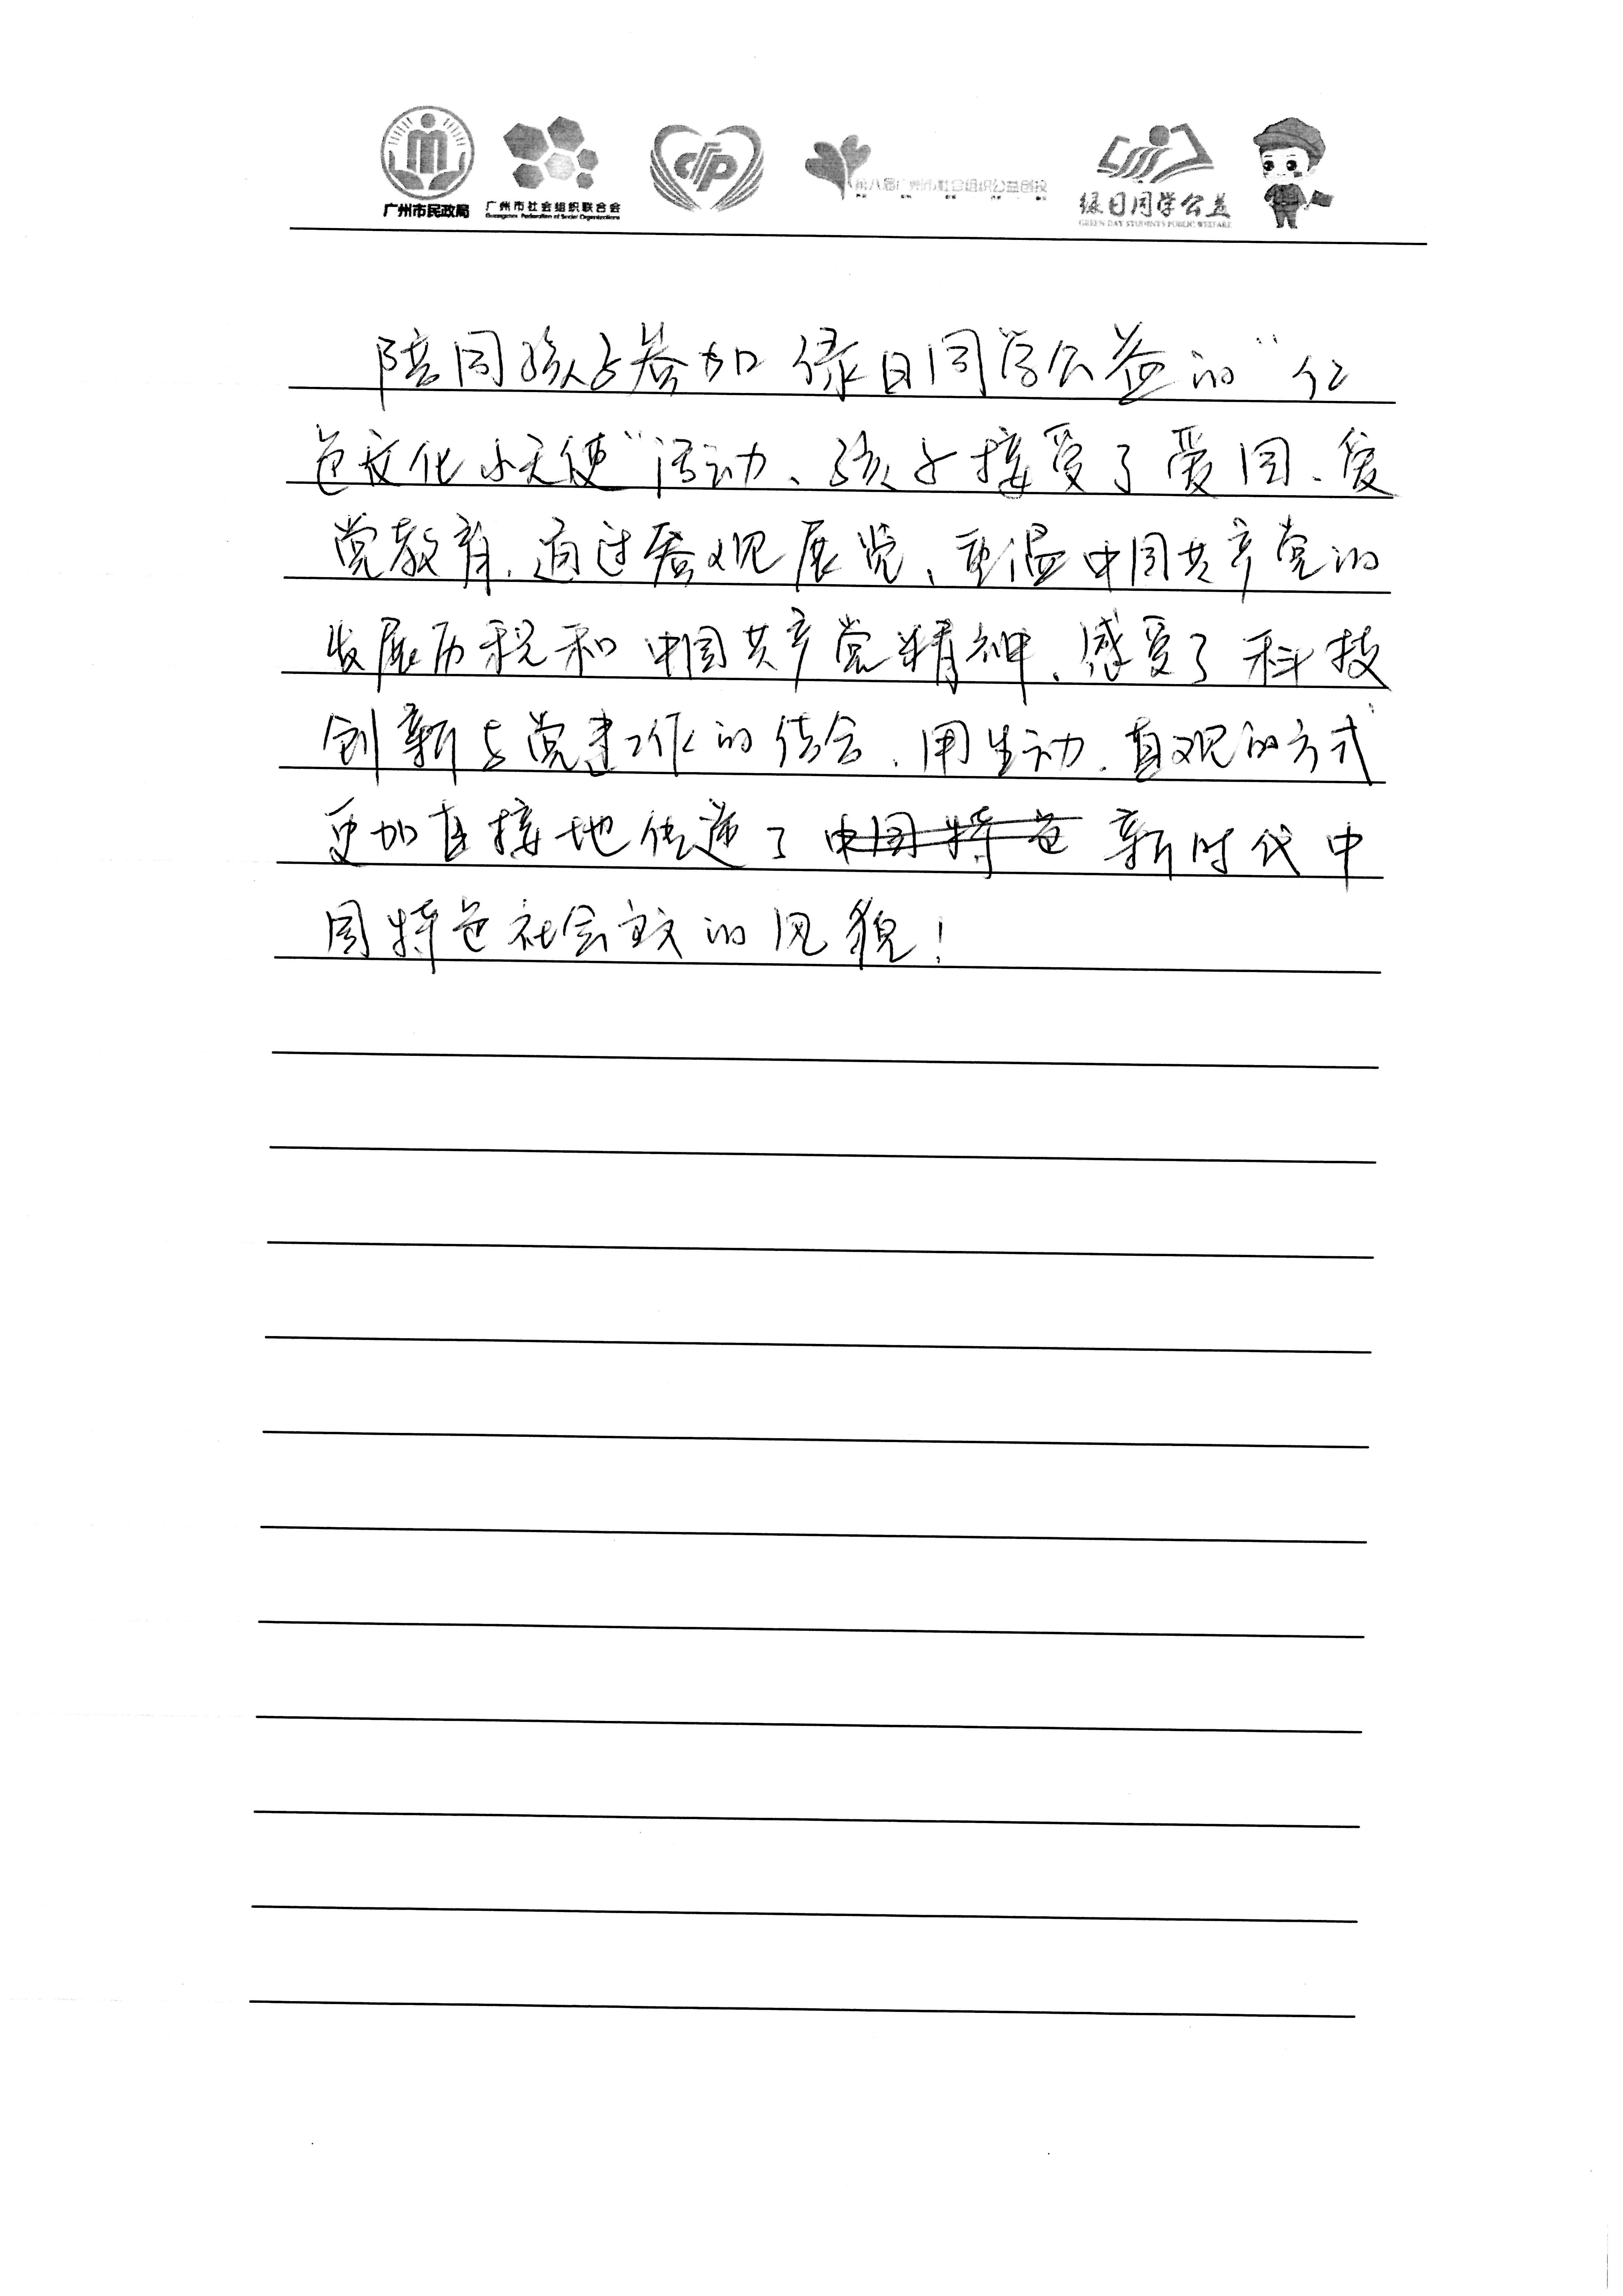 广州市民政局
广州市社会组织联合会
Guangzhou Federation of Social Organizations
第八届广州市社会组织公益创投
绿日同学公益
GREEN DAY STUDENTS PUBLIC WELFARE
陪同孩子参加绿日同学公益的“红
色文化小天使”活动、孩子接受了爱国、爱
党教育,通过参观展览、重温中国共产党的
发展历程和中国共产党精神、感受了科技
创新与党建工作的结合、用生动、直观的方式
更加直接地传递了中国特色新时代中
国特色社会主义的风貌!